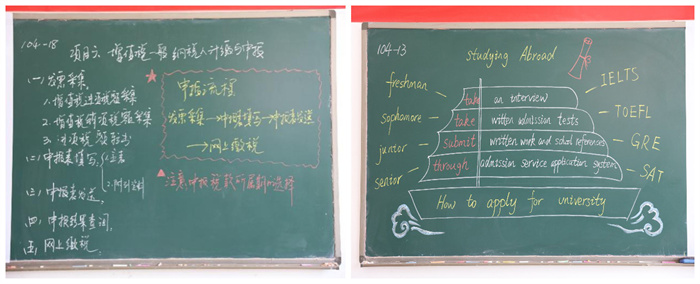 104-18
项目六 增值税一般纳税人计缴与申报
(一)发票采集
1.增值税进项税额采集
2.增值税销项税额采集
3.进项税额转出
(二)申报表填写
1.主表
2.附列资料
(三)申报表发送
(四)申报结果查询
(五)网上缴税
申报流程
发票采集→申报填写→申报表发送
→网上缴税
注意申报税款所属期的选择
104-13
Studying Abroad
freshman
Sophomore
junior
senior
take an interview
take written admission tests
submit written work and school references
through admission service application system
How to apply for university
IELTS
TOEFL
GRE
SAT